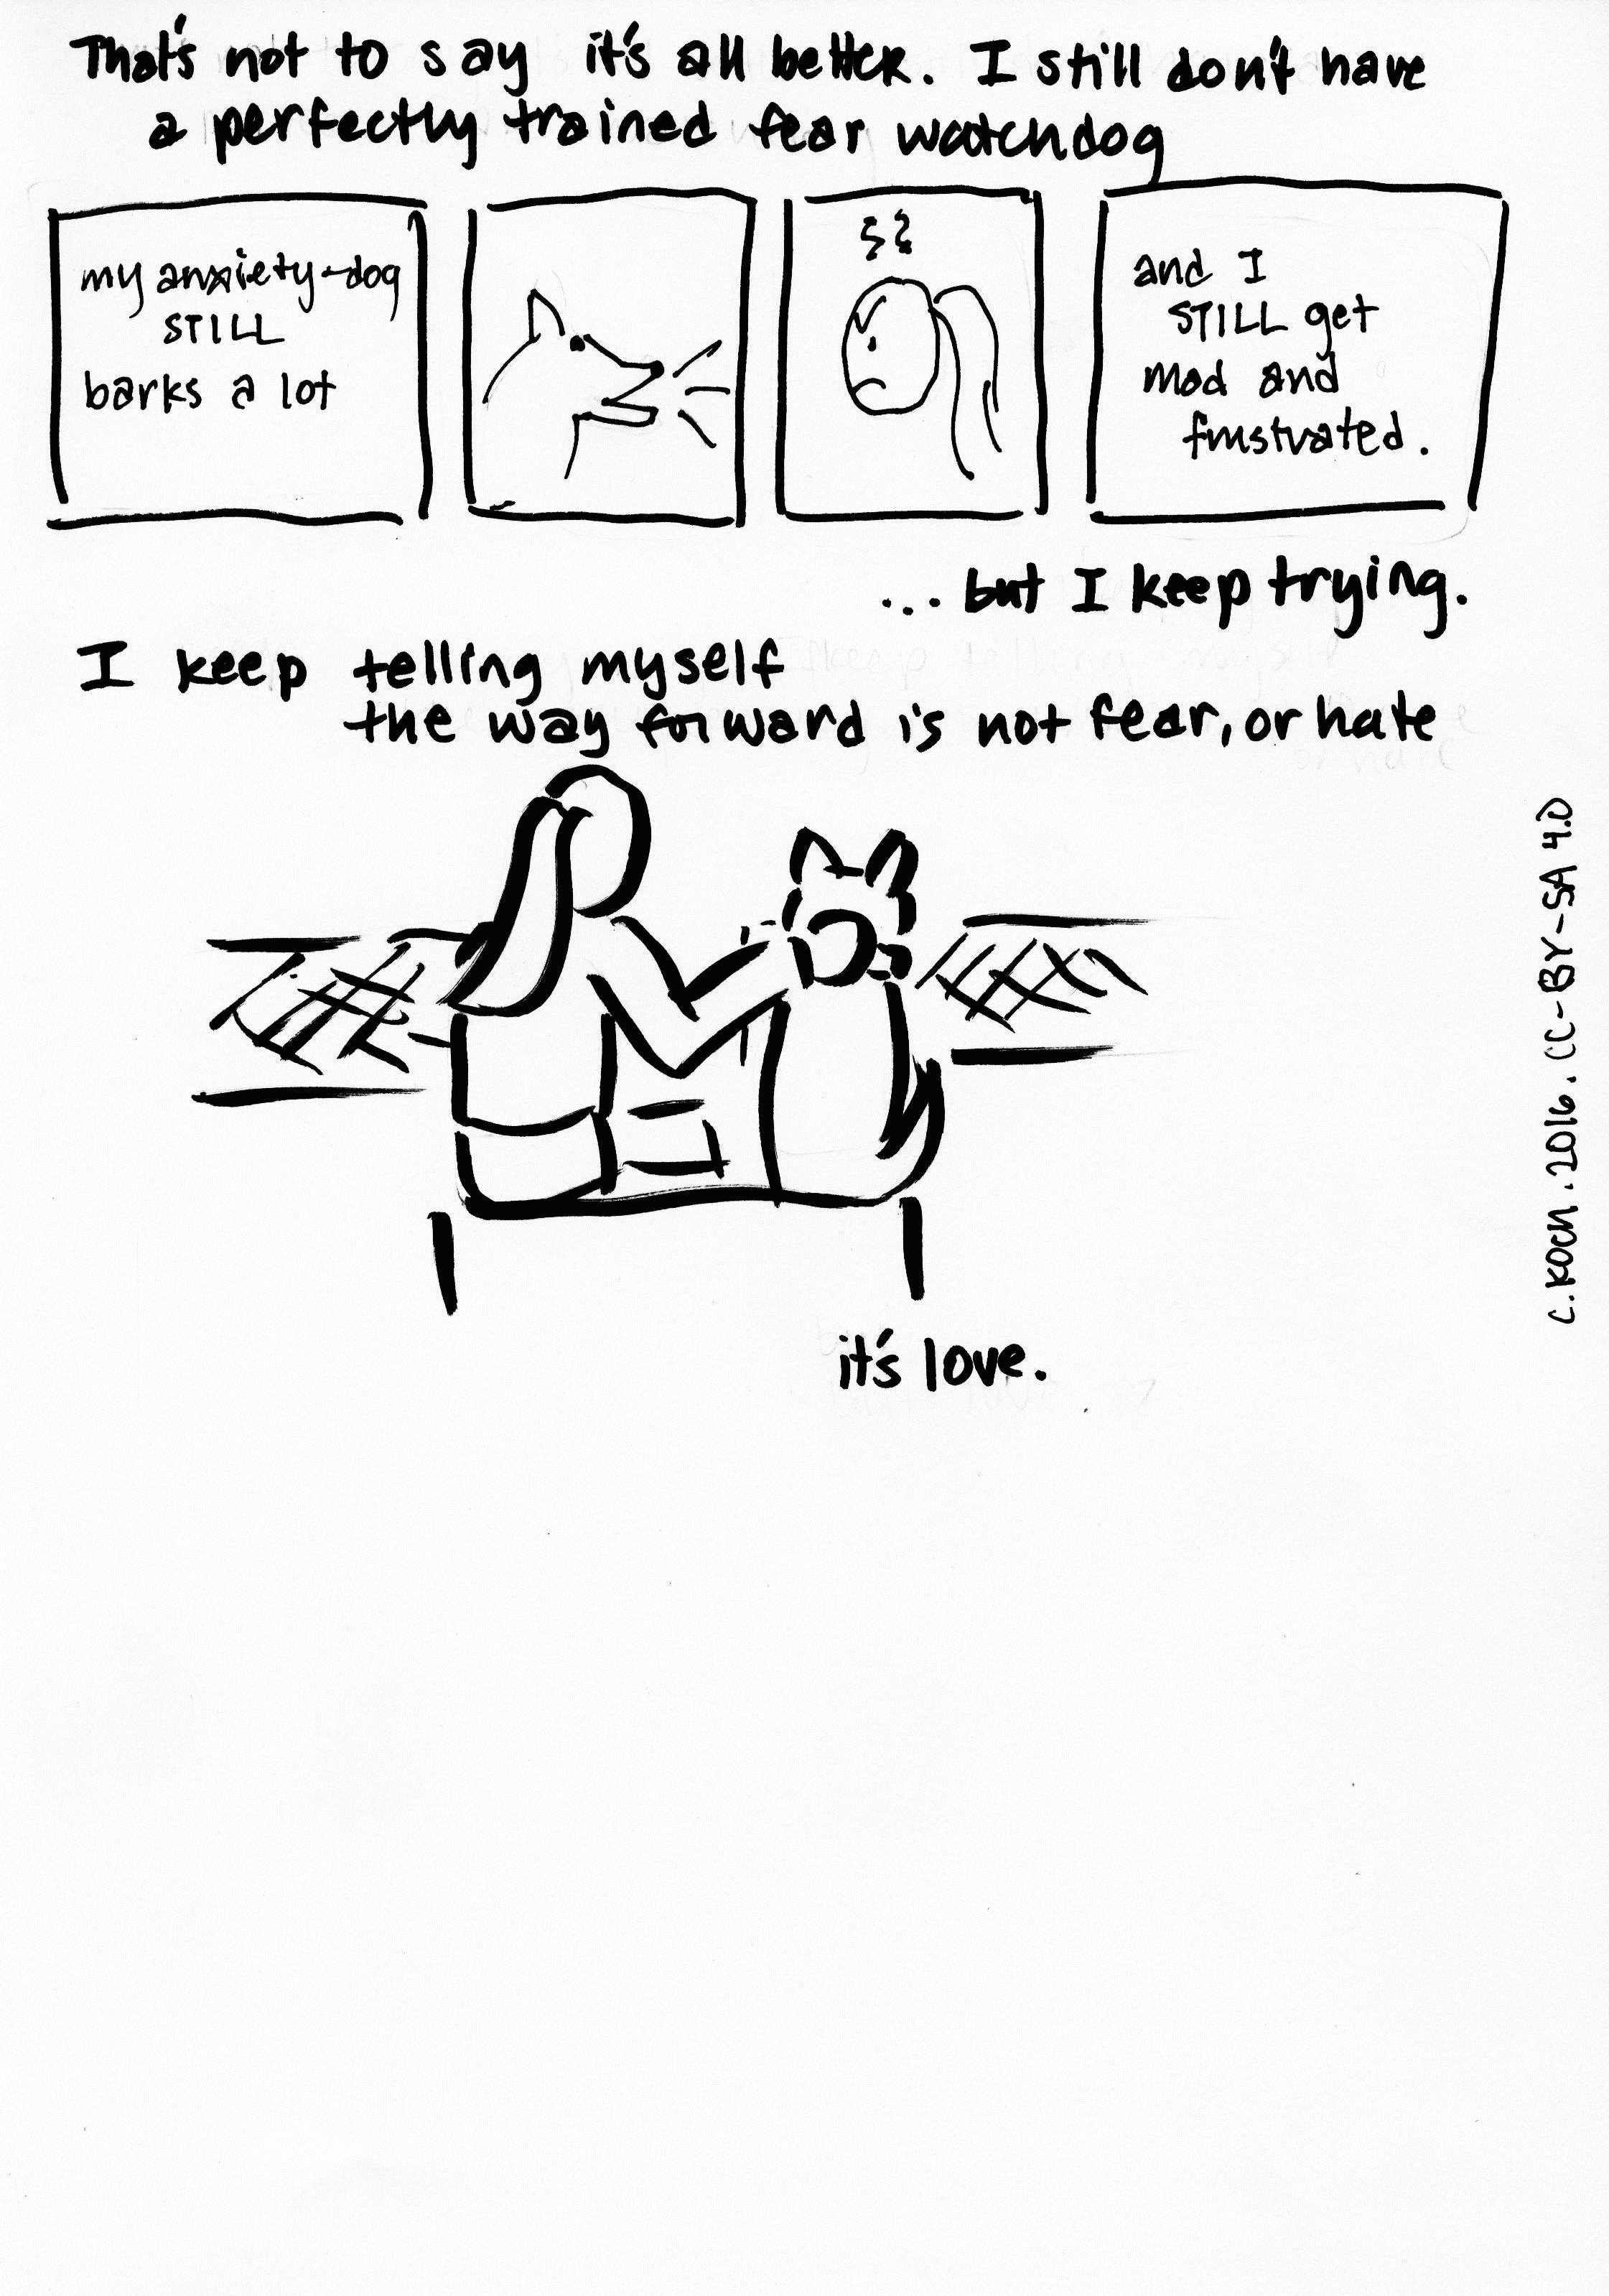 That's not to say it's all better. I still don't have
a perfectly trained fear watchdog
my anxiety-dog
STILL
barks a lot
and I
STILL get
mad and
frustrated.
...but I keep trying.
I keep telling myself
the way forward is not fear, or hate
it's love.
C. KOCH. 2016. CC-BY-SA 4.0